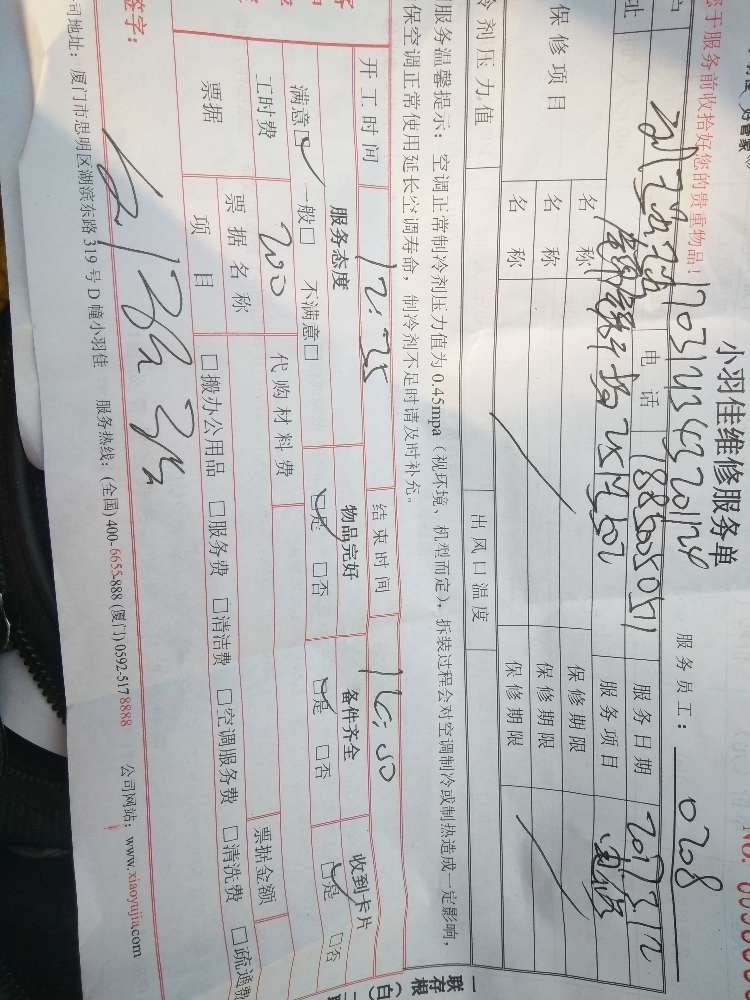 小羽佳维修服务单
于服务前收拾好您的贵重物品！
17031434320124
服务员工：
0208
NO.
户
电话
18850050511
服务日期
2017.3.12
址
服务项目
保修项目
名称
保修期限
名称
保修期限
名称
保修期限
冷剂压力值
出风口温度
服务温馨提示：空调正常制冷剂压力值为0.45mpa（视环境、机型而定），拆装过程会对空调制冷或制热造成一定影响，
保空调正常使用延长空调寿命，制冷剂不足时请及时补充。
开工时间
12:35
结束时间
16:50
服务态度
物品完好
备件齐全
收到卡片
满意□ 一般□ 不满意□
□是 □否
□是 □否
□是 □否
工时费
200
代购材料费
票据金额
票据
票据名称
项目
□搬办公用品 □服务费 □清洁费 □空调服务费 □清洗费 □疏通费
签字：
司地址：厦门市思明区湖滨东路319号D幢小羽佳 服务热线：(全国)400-6655-888(厦门)0592-5178888 公司网站：www.xiaoyujia.com
一联存根（白）